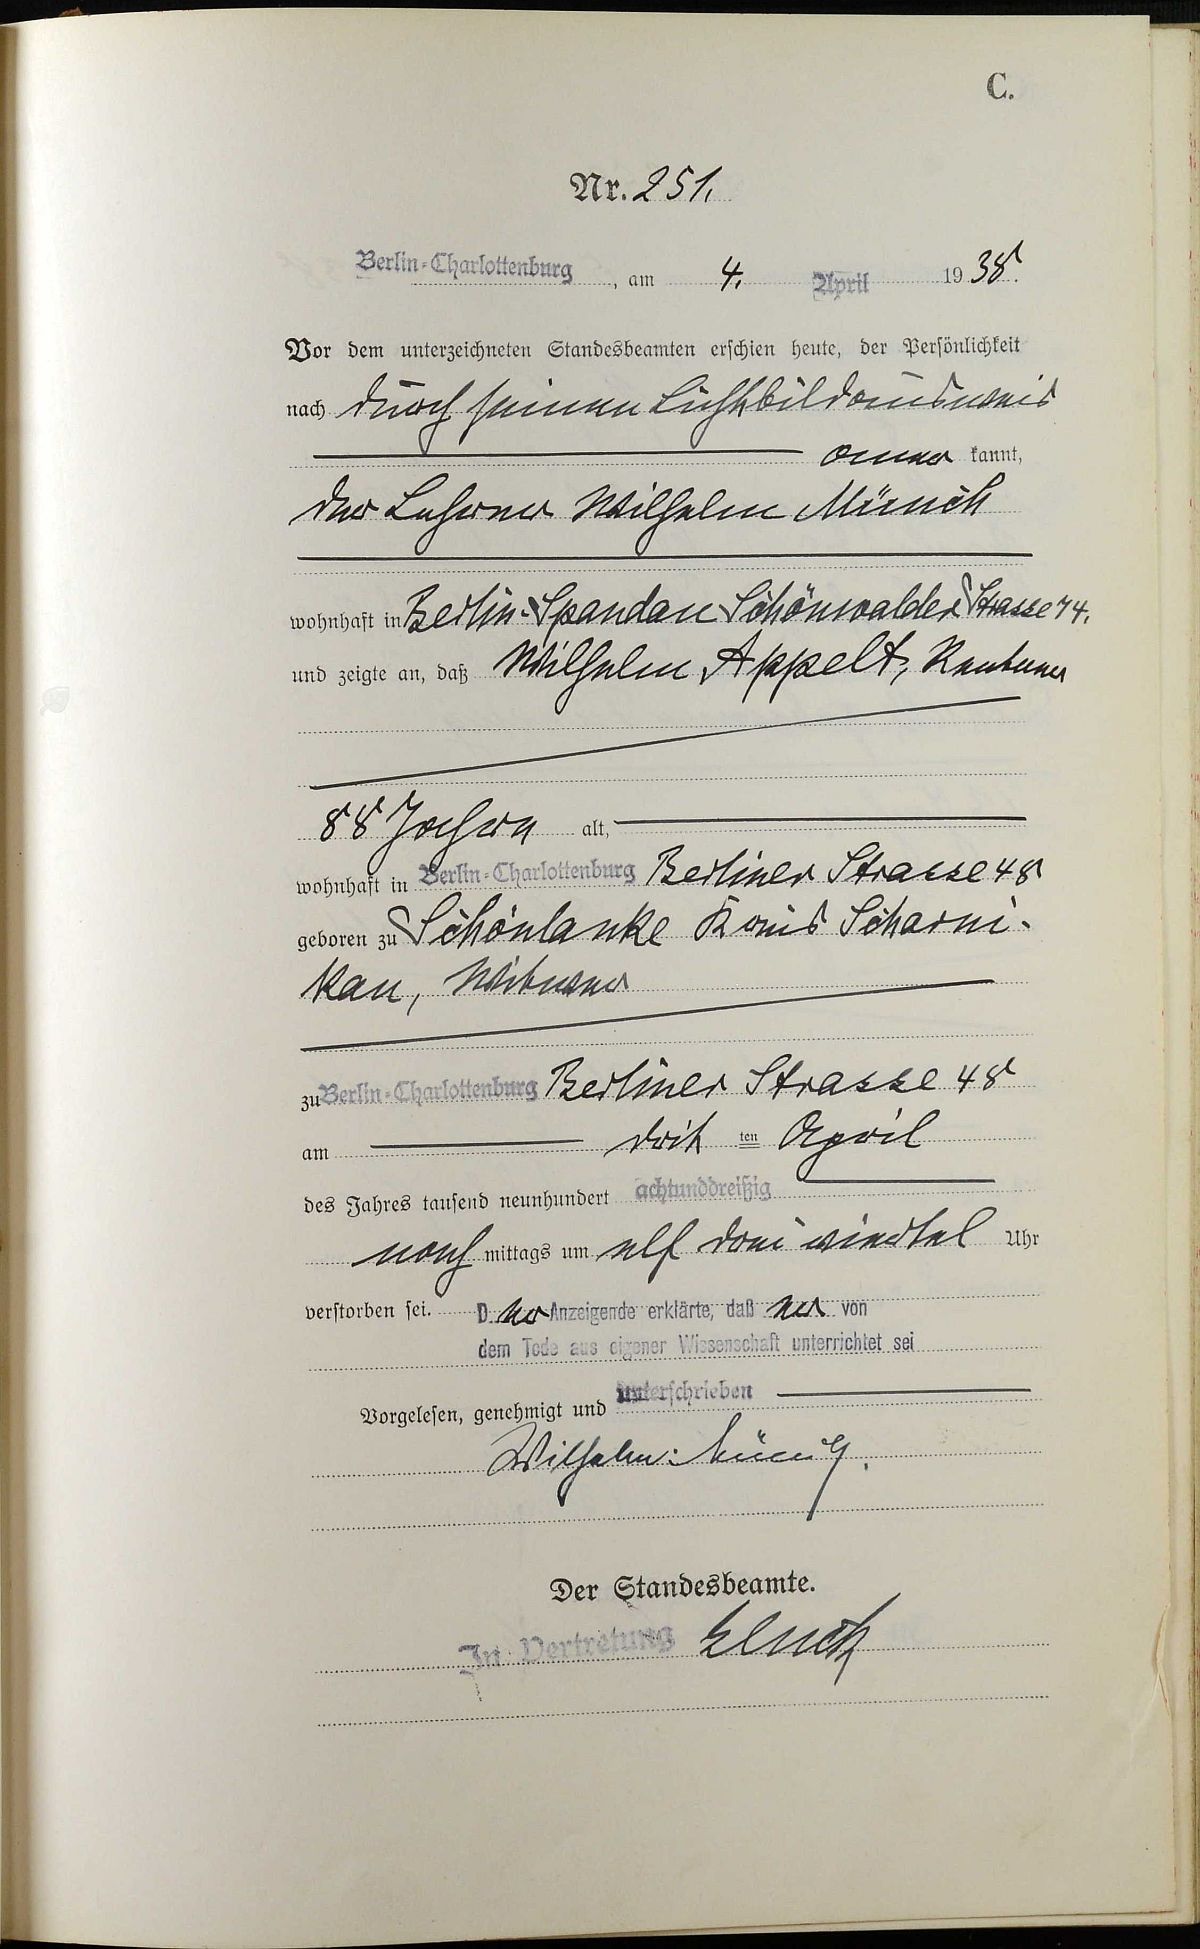 C.
Nr. 251.
Berlin-Charlottenburg, am 4. April 1938.
Vor dem unterzeichneten Standesbeamten erschien heute, der Persönlichkeit
nach durch seinen Lichtbildausweis
aner kannt,
der Lehrer Wilhelm Münch
wohnhaft in Berlin-Spandau Schönwalder Strasse 74.
und zeigte an, daß Wilhelm Appelt, Rentner
88 Jahre alt,
wohnhaft in Berlin-Charlottenburg Berliner Strasse 48
geboren zu Schönlanke Kreis Scharni-
kau, Witwer
zu Berlin-Charlottenburg Berliner Strasse 48
am drit ten April
des Jahres tausend neunhundert achtunddreißig
nach mittags um elf drei viertel Uhr
verstorben sei. D er Anzeigende erklärte, daß er von
dem Tode aus eigener Wissenschaft unterrichtet sei
Vorgelesen, genehmigt und unterschrieben
Wilhelm Münch.
Der Standesbeamte.
In Vertretung